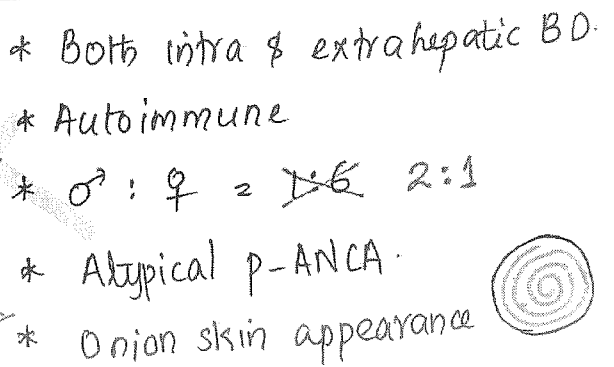 * Both intra & extrahepatic BD.
* Autoimmune
* ♂ : ♀ = 1:6 2:1
* Atypical p-ANCA.
* Onion skin appearance